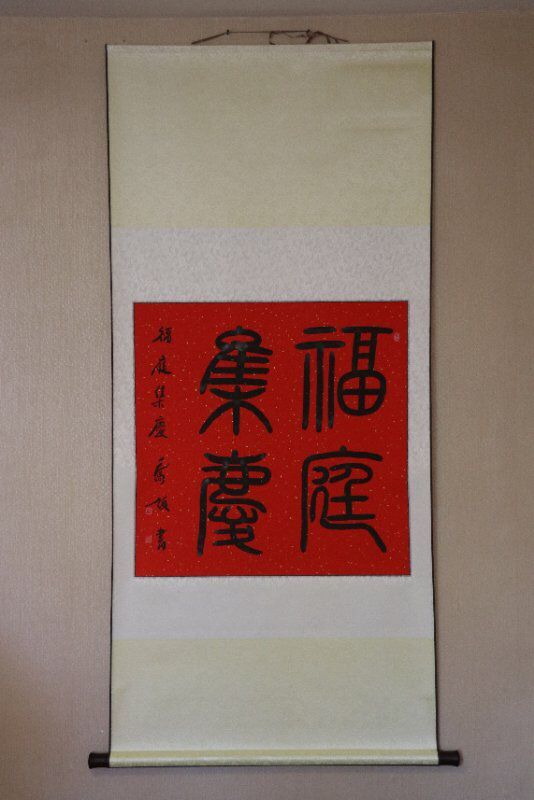 福庭
集慶
福庭集慶 壽頤書